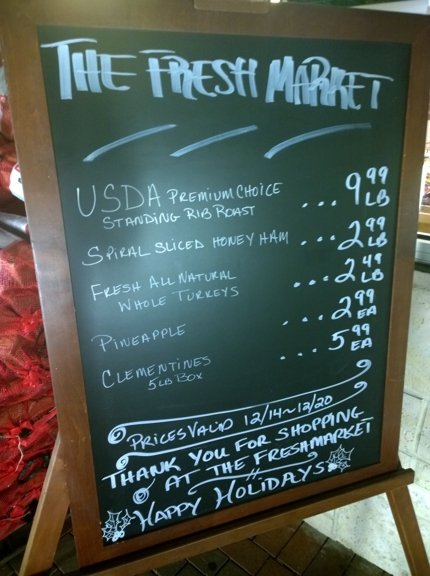 THE FRESH MARKET
USDA PREMIUM CHOICE
STANDING RIB ROAST ... 9.99 LB
SPIRAL SLICED HONEY HAM ... 2.99 LB
FRESH ALL NATURAL
WHOLE TURKEYS ... 2.49 LB
PINEAPPLE ... 2.99 EA
CLEMENTINES ... 5.99 EA
5LB BOX
PRICES VALID 12/14~12/20
THANK YOU FOR SHOPPING
AT THE FRESHMARKET
HAPPY HOLIDAYS